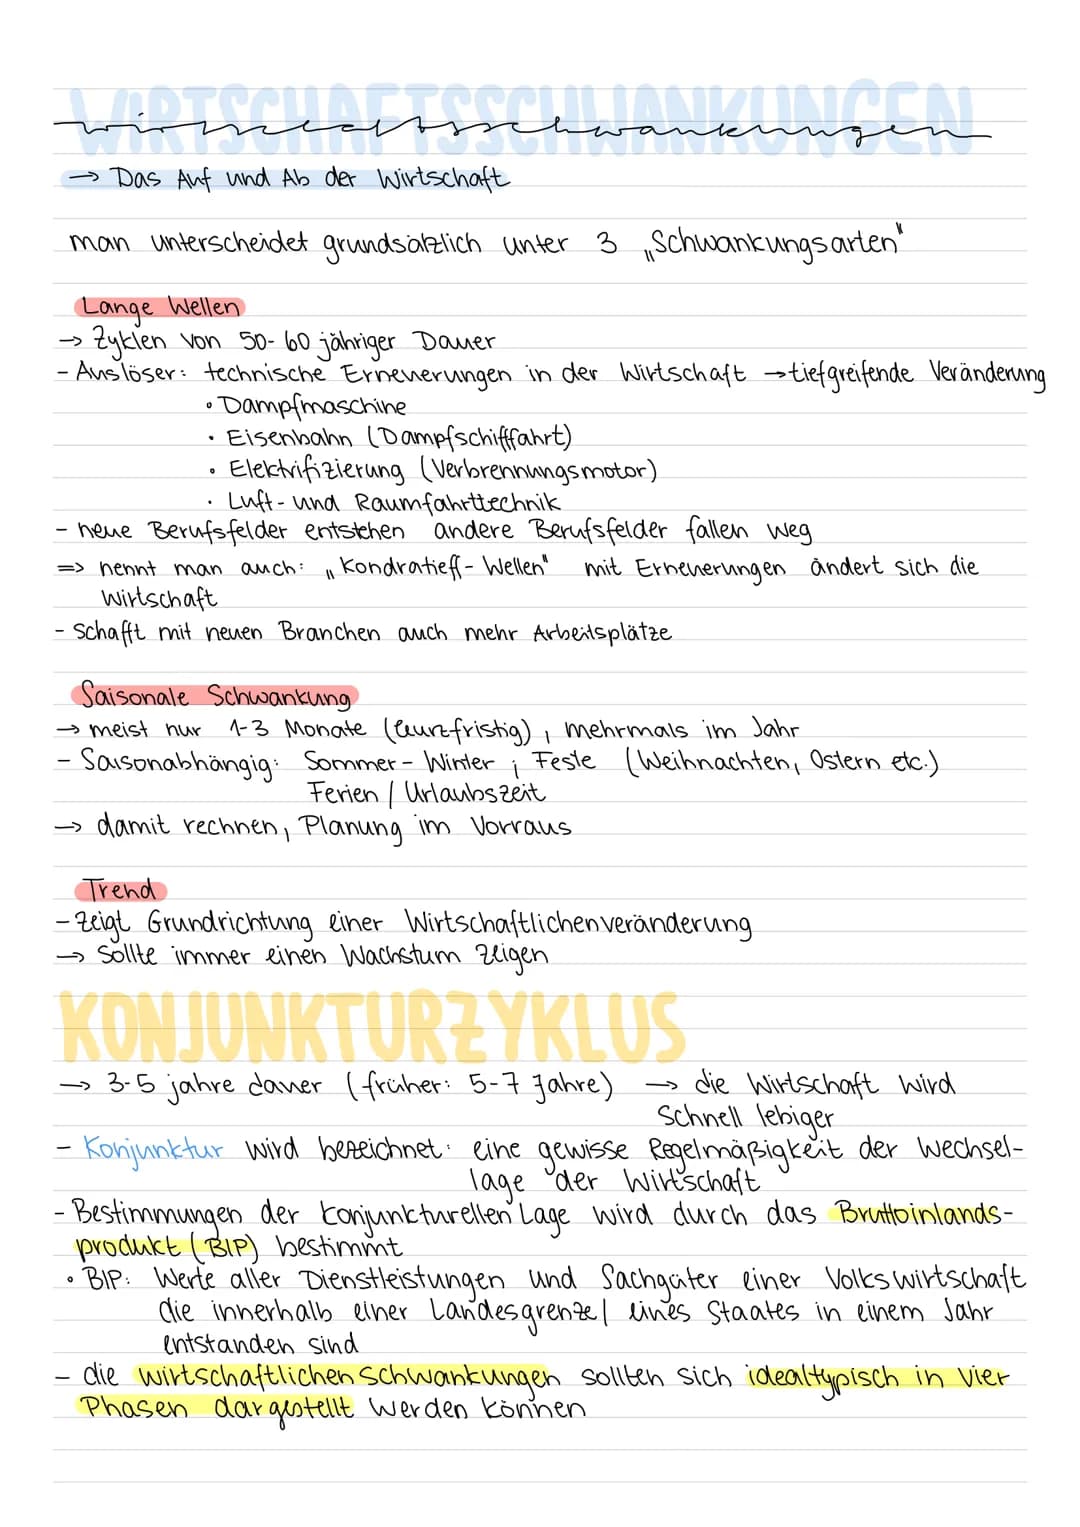 WIRTSCHAFTSSCHWANKUNGEN
wirtschaftsschwankungen
→ Das Auf und Ab der Wirtschaft
man unterscheidet grundsätzlich unter 3 „Schwankungsarten"
Lange Wellen
→ Zyklen von 50-60 jähriger Dauer
- Auslöser: technische Erneuerungen in der Wirtschaft → tiefgreifende Veränderung
• Dampfmaschine
• Eisenbahn (Dampfschifffahrt)
• Elektrifizierung (Verbrennungsmotor)
• Luft- und Raumfahrttechnik
- neue Berufsfelder entstehen andere Berufsfelder fallen weg
=> nennt man auch: „Kondratieff-Wellen" mit Erneuerungen ändert sich die
Wirtschaft
- Schafft mit neuen Branchen auch mehr Arbeitsplätze
Saisonale Schwankung
→ meist nur 1-3 Monate (kurzfristig), mehrmals im Jahr
- Saisonabhängig: Sommer - Winter ; Feste (Weihnachten, Ostern etc.)
Ferien / Urlaubszeit
→ damit rechnen, Planung im Vorraus
Trend
- Zeigt Grundrichtung einer Wirtschaftlichenveränderung
→ Sollte immer einen Wachstum zeigen
KONJUNKTURZYKLUS
→ 3-5 jahre dauer (früher: 5-7 Jahre) → die Wirtschaft wird
Schnell lebiger
- Konjunktur wird bezeichnet: eine gewisse Regelmäßigkeit der Wechsel-
lage der Wirtschaft
- Bestimmungen der konjunkturellen Lage wird durch das Bruttoinlands-
produkt (BIP) bestimmt
• BIP: Werte aller Dienstleistungen und Sachgüter einer Volkswirtschaft
die innerhalb einer Landesgrenze / eines Staates in einem Jahr
entstanden sind
- die wirtschaftlichen Schwankungen sollten sich idealtypisch in vier
Phasen dargestellt werden können